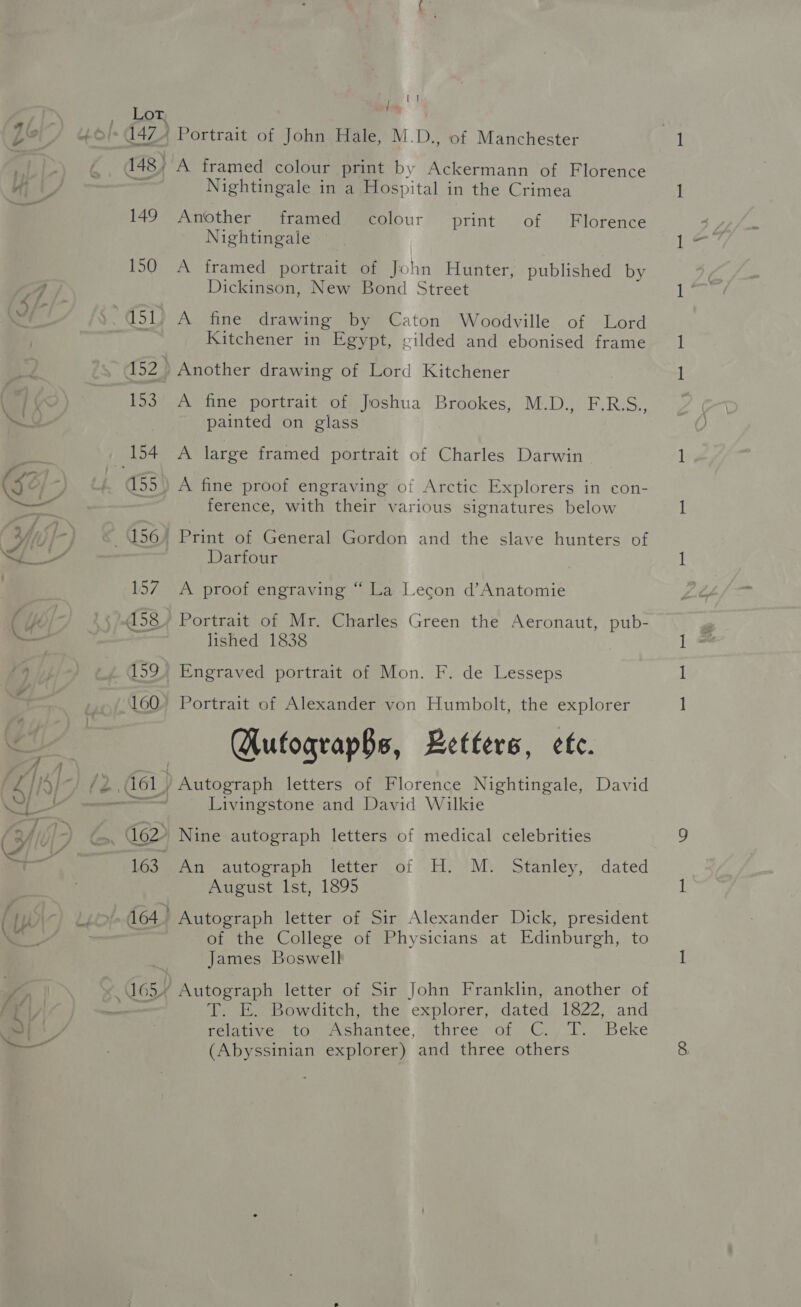 Lot
147 Portrait of John Hale, M.D., of Manchester 1
148 A framed colour print by Ackermann of Florence
Nightingale in a Hospital in the Crimea 1
149 Another framed colour print of Florence
Nightingale 1
150 A framed portrait of John Hunter, published by
Dickinson, New Bond Street 1
151 A fine drawing by Caton Woodville of Lord
Kitchener in Egypt, gilded and ebonised frame 1
152 Another drawing of Lord Kitchener 1
153 A fine portrait of Joshua Brookes, M.D., F.R.S.,
painted on glass
154 A large framed portrait of Charles Darwin 1
155 A fine proof engraving of Arctic Explorers in con-
ference, with their various signatures below 1
156 Print of General Gordon and the slave hunters of
Darfour 1
157 A proof engraving “ La Leçon d’Anatomie
158 Portrait of Mr. Charles Green the Aeronaut, pub-
lished 1838 1
159 Engraved portrait of Mon. F. de Lesseps 1
160 Portrait of Alexander von Humbolt, the explorer 1
Autographs, Letters, etc.
161 Autograph letters of Florence Nightingale, David
Livingstone and David Wilkie
162 Nine autograph letters of medical celebrities 9
163 An autograph letter of H. M. Stanley, dated
August 1st, 1895 1
164 Autograph letter of Sir Alexander Dick, president
of the College of Physicians at Edinburgh, to
James Boswell 1
165 Autograph letter of Sir John Franklin, another of
T. E. Bowditch, the explorer, dated 1822, and
relative to Ashantee, three of C. T. Beke
(Abyssinian explorer) and three others 8